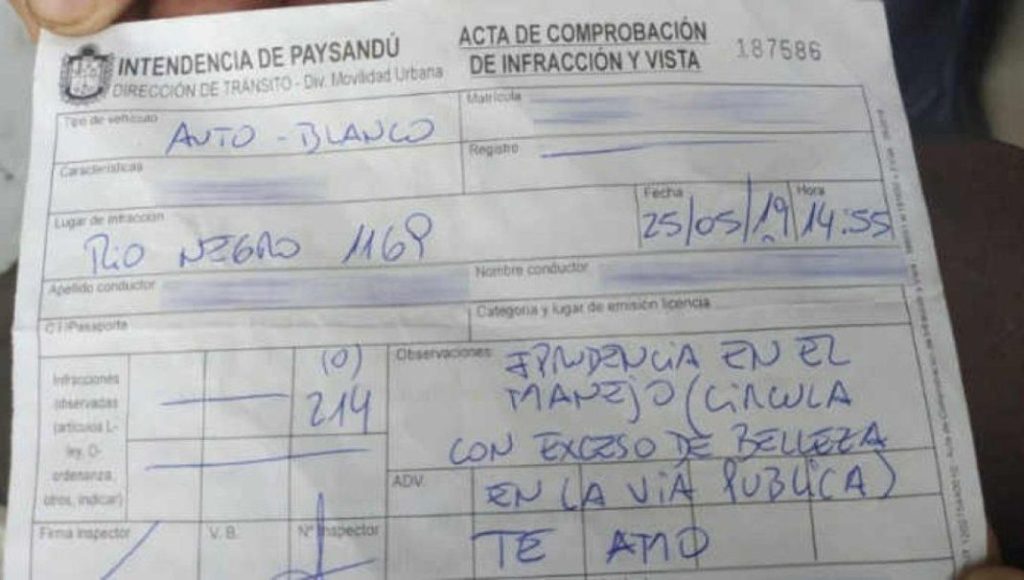 INTENDENCIA DE PAYSANDÚ
DIRECCIÓN DE TRÁNSITO - Div. Movilidad Urbana
ACTA DE COMPROBACIÓN
DE INFRACCIÓN Y VISTA
187586
Tipo de vehículo
AUTO - BLANCO
Matrícula
Características
Registro
Lugar de infracción
RIO NEGRO 1169
Fecha
25/05/19
Hora
14:55
Apellido conductor
Nombre conductor
C.I/Pasaporte
Categoría y lugar de emisión licencia
Infracciones
observadas
(artículos L-
ley, O-
ordenanza,
otros, indicar)
(O)
214
Observaciones
EN EL
MANEJO (CIRCULA
CON EXCESO DE BELLEZA
EN LA VIA PUBLICA)
TE AMO
ADV.
Firma Inspector
V. B.
Nº Inspector